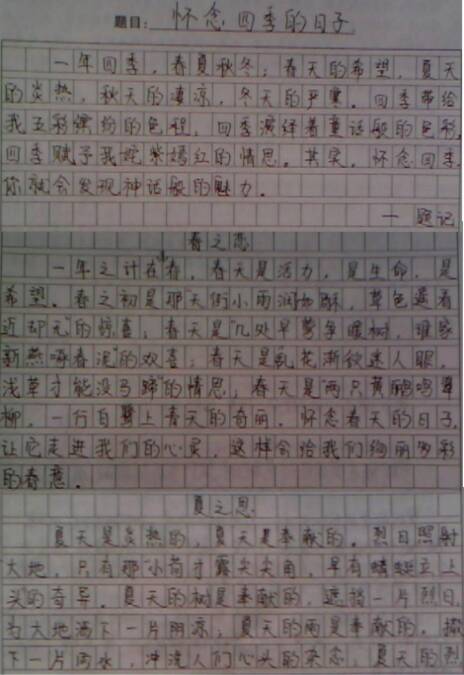 题目：怀念四季的日子
一年四季，春夏秋冬；春天的希望，夏天
的炎热，秋天的凄凉，冬天的严寒。四季带给
我五彩缤纷的色程，四季演绎着童话般的色彩，
四季赋予我姹紫嫣红的情思。其实，怀念四季，
你就会发现神话般的魅力。
——题记
春之恋
一年之计在春，春天是活力，是生命，是
希望。春之初是那“天街小雨润如酥，草色遥看
近却无”的惊喜；春天是“几处早莺争暖树，谁家
新燕啄春泥”的欢喜；春天是“乱花渐欲迷人眼，
浅草才能没马蹄”的情思；春天是“两只黄鹂鸣翠
柳，一行白鹭上青天”的奇丽。怀念春天的日子，
让它走进我们的心灵，这样会给我们绚丽多彩
的春意。
夏之思
夏天是炎热的，夏天是奉献的。烈日照射
大地，只有那“小荷才露尖尖角，早有蜻蜓立上
头”的奇异。夏天的树是奉献的，遮挡一片烈日，
为大地洒下一片阴凉；夏天的雨是奉献的，撒
下一片雨水，冲洗人们心头的杂念；夏天的烈